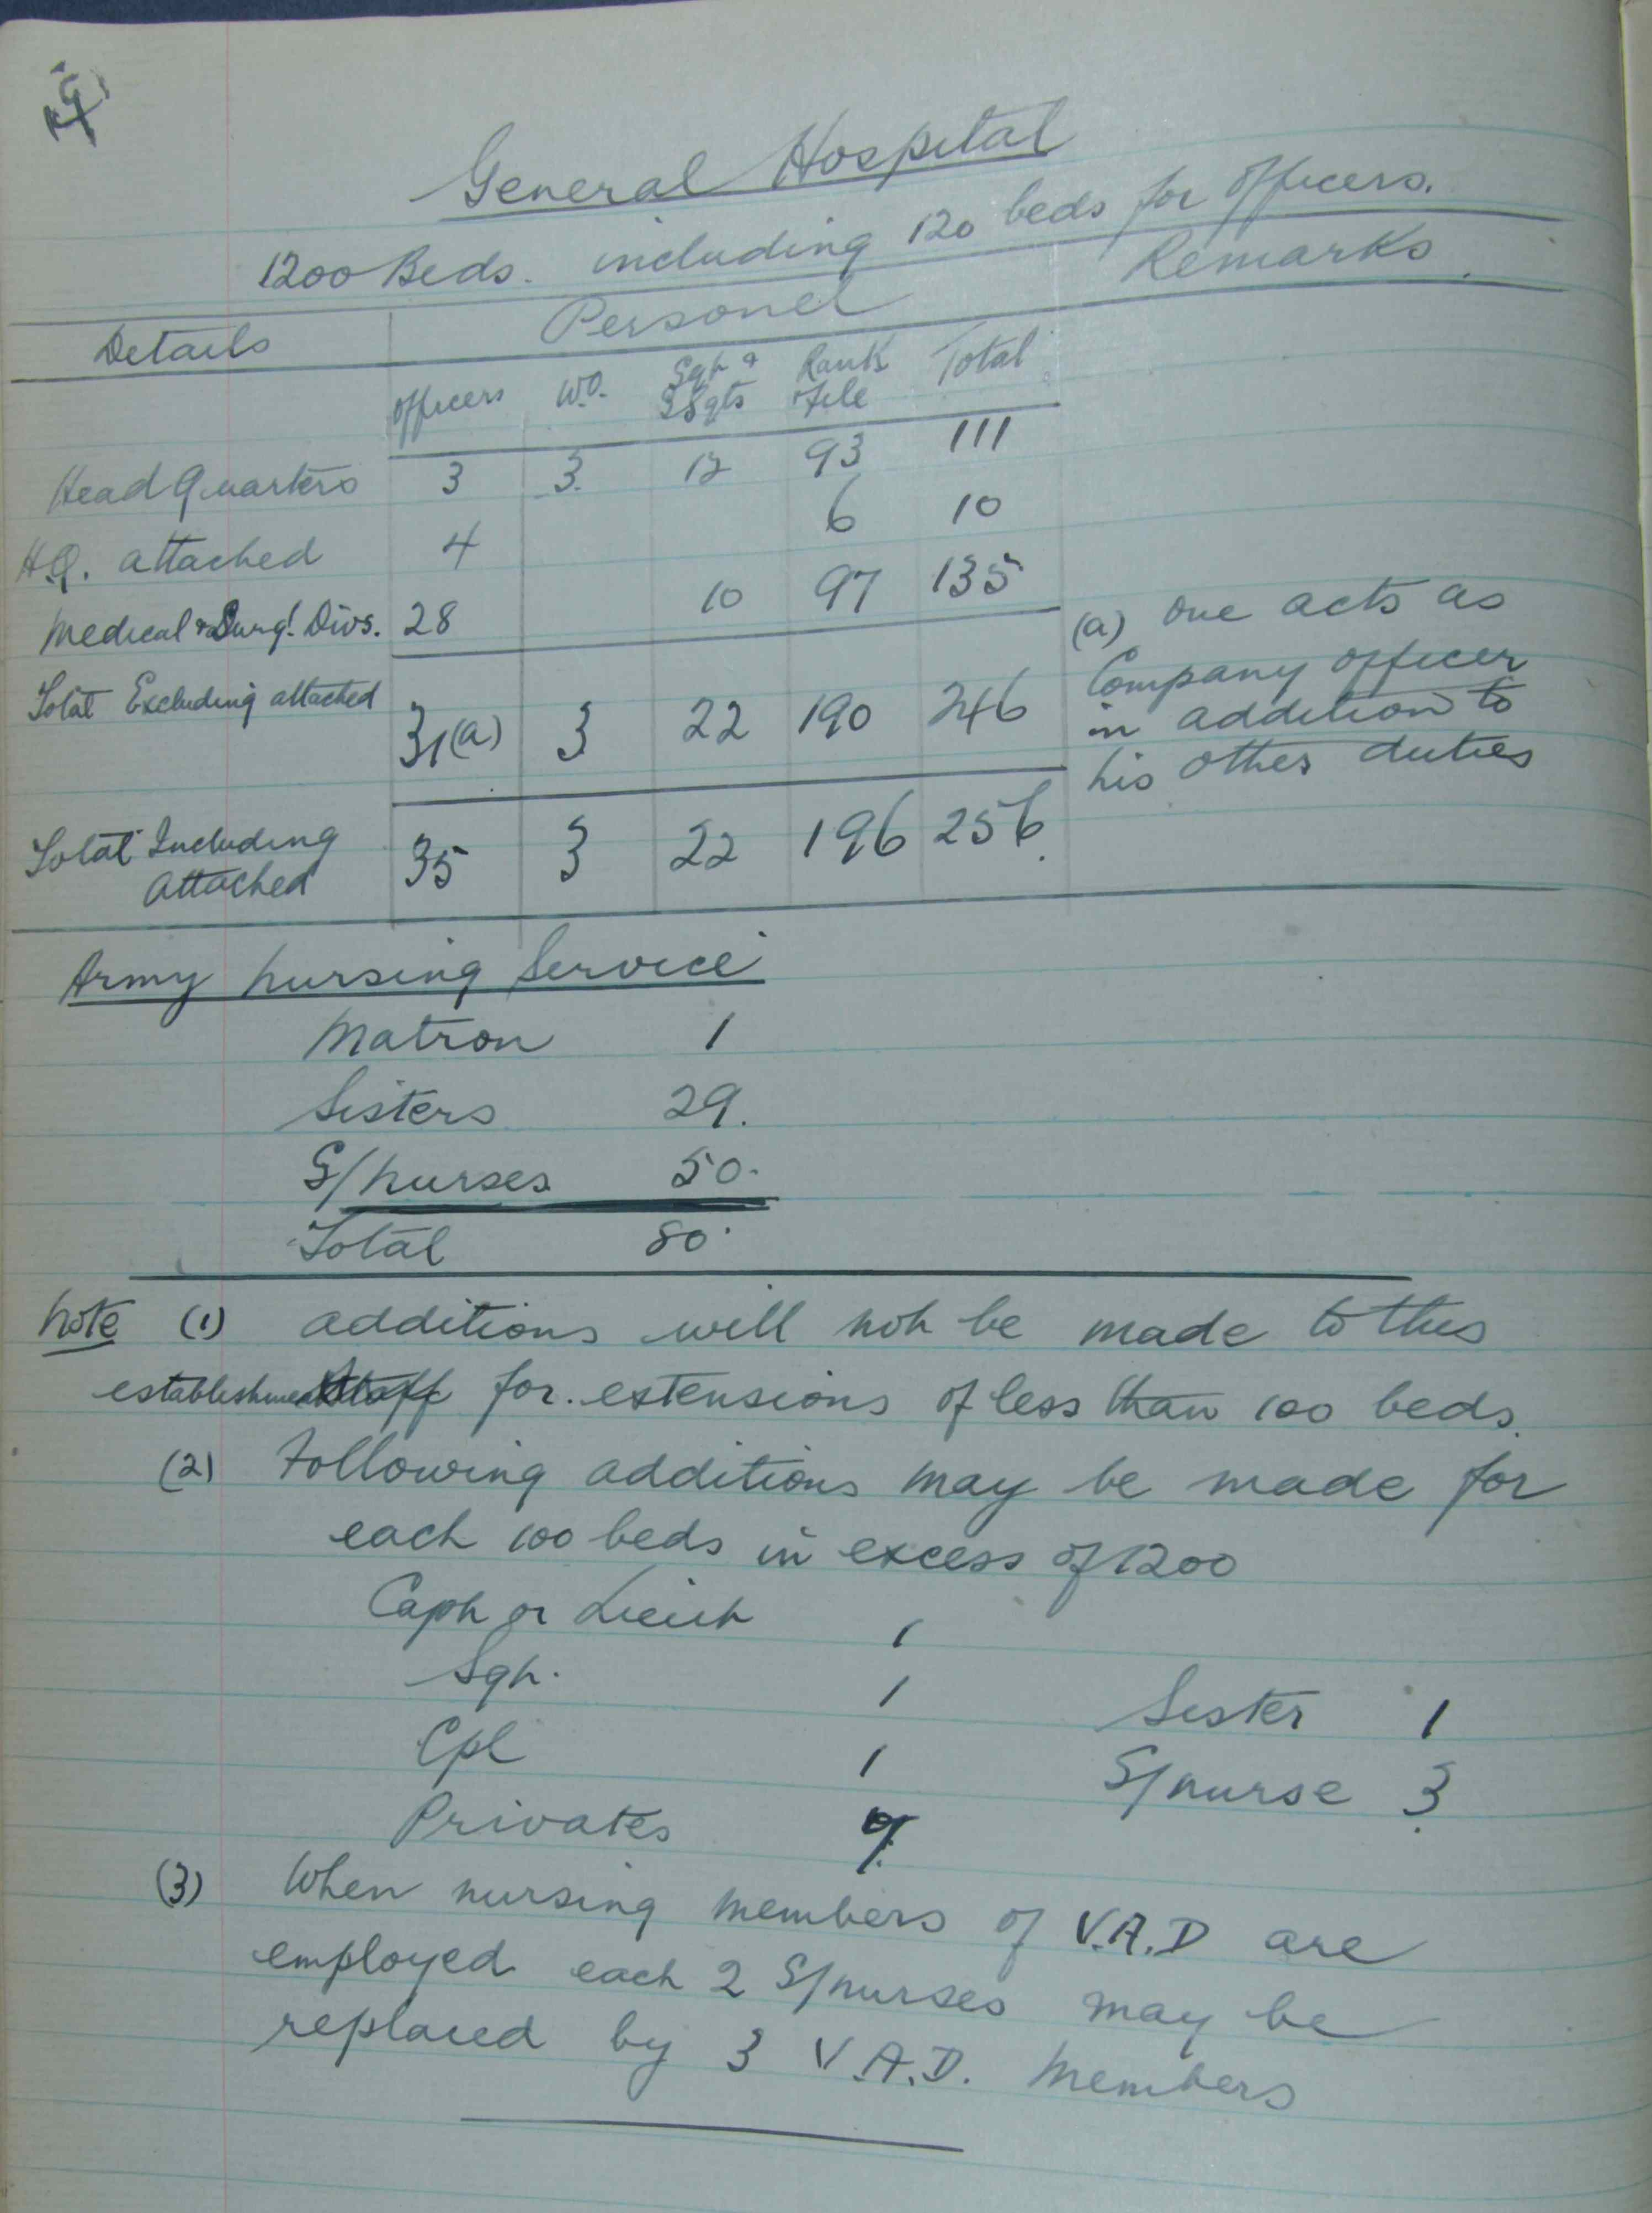 General Hospital
1200 Beds. including 120 beds for Officers.
Details Personel Remarks
Officers W.O. Sgt & S Sgts Rank & File Total
Head Quarters 3 3. 12 93 111
H.Q. attached 4 6 10
Medical & Surgl. Divs. 28 10 97 135
Total Excluding attached 31(a) 3 22 190 246
(a) One acts as
Company Officer
in addition to
his other duties
Total Including
attached 35 3 22 196 256.
Army Nursing Service
Matron 1
Sisters 29.
S/nurses 50.
Total 80.
Note (1) additions will not be made to this
establishment for. extensions of less than 100 beds.
(2) Following additions may be made for
each 100 beds in excess of 1200
Capt or Lieut 1
Sgt. 1
Cpl 1
Privates
Sister 1
S/nurse 3
(3) When nursing members of V.A.D are
employed each 2 S/nurses may be
replaced by 3 V.A.D. Members